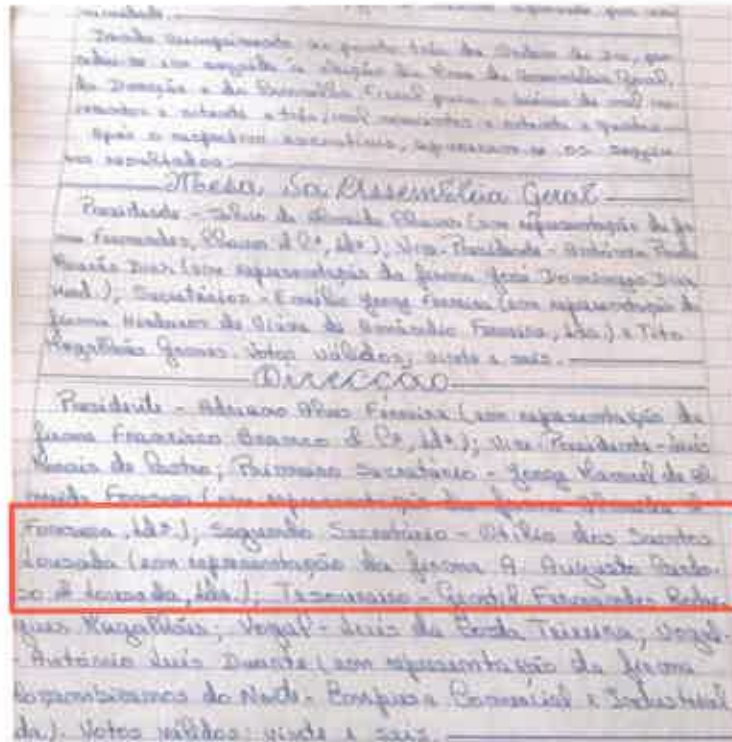 Dando cumprimento ao ponto três da Ordem do Dia, pro-
cedeu-se em seguida à eleição da Mesa da Assembléia Geral,
da Direcção e do Conselho Fiscal para o biénio de mil no-
vecentos e oitenta e três/mil novecentos e oitenta e quatro.
Após o respectivo escrutínio, apuraram-se os seguin-
tes resultados:
Mesa da Assembléia Geral
Presidente - de Almeida (em representação da fir-
ma Fernandes, & Cª, Ldª.), Vice-Presidente - António
Dias (em representação da firma José Domingos Dias
), Secretários - Emílio Jorge Ferreira (em representação da
firma de Amândio Ferreira, Lda.) e Tito
Magalhães Gomes. Votos válidos, vinte e seis.
Direcção
Presidente - Adriano Alves Ferreira (em representação da
firma Francisco Branco & Cª, Ldª.); Vice-Presidente - Luís
Morais de Castro; Primeiro Secretário - Jorge Manuel de Al-
meida Fonseca (em representação da firma Almeida &
Fonseca, Ldª.); Segundo Secretário - Otílio dos Santos
Lousada (em representação da firma A. Augusto Cardo-
so & Lousada, Lda.); Tesoureiro - Gentil Fernandes Rodri-
gues Magalhães; Vogal - Luís da Costa Teixeira; Vogal-
- António Luís Duarte (em representação da firma
do Norte - Empresa Comercial e Industrial
da). Votos válidos: vinte e seis.